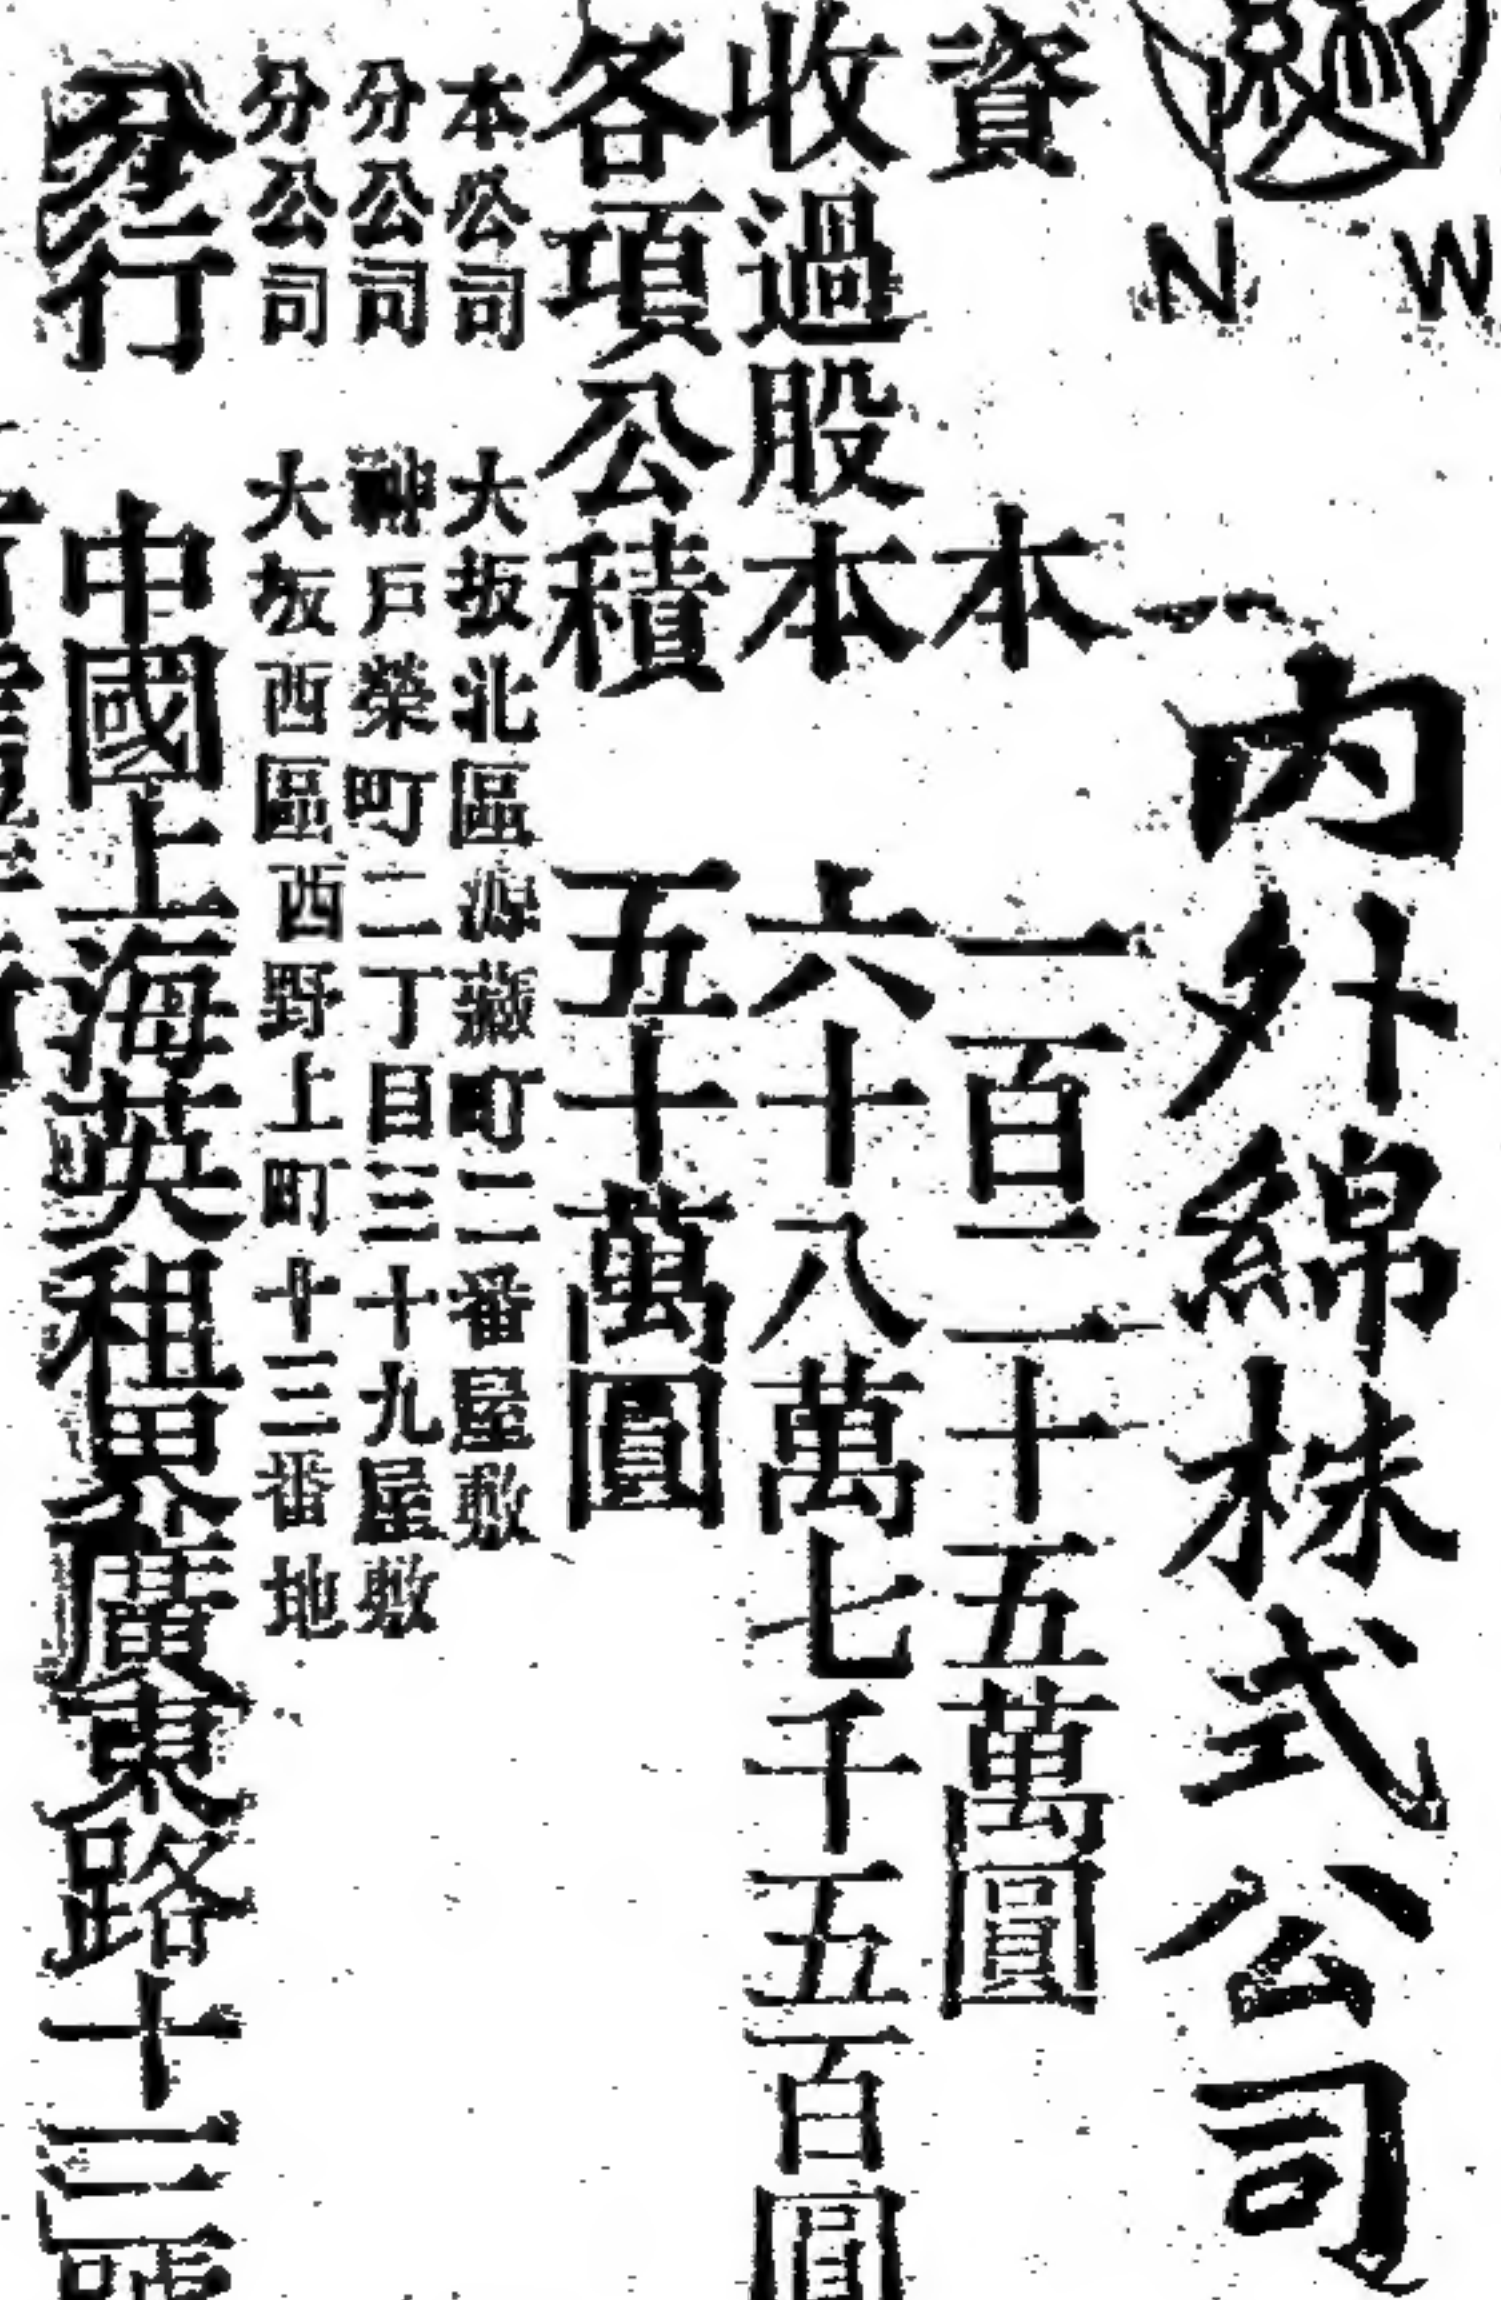 N W
內外綿株式公司
資本 一百二十五萬圓
收過股本 六十八萬七千五百圓
各項公積 五十萬圓
本公司 大坂北區源藏町二番屋敷
分公司 神戶榮町二丁目三十九屋敷
分公司 大坂西區西野上町十三番地
分行 中國上海英租界廣東路十三號